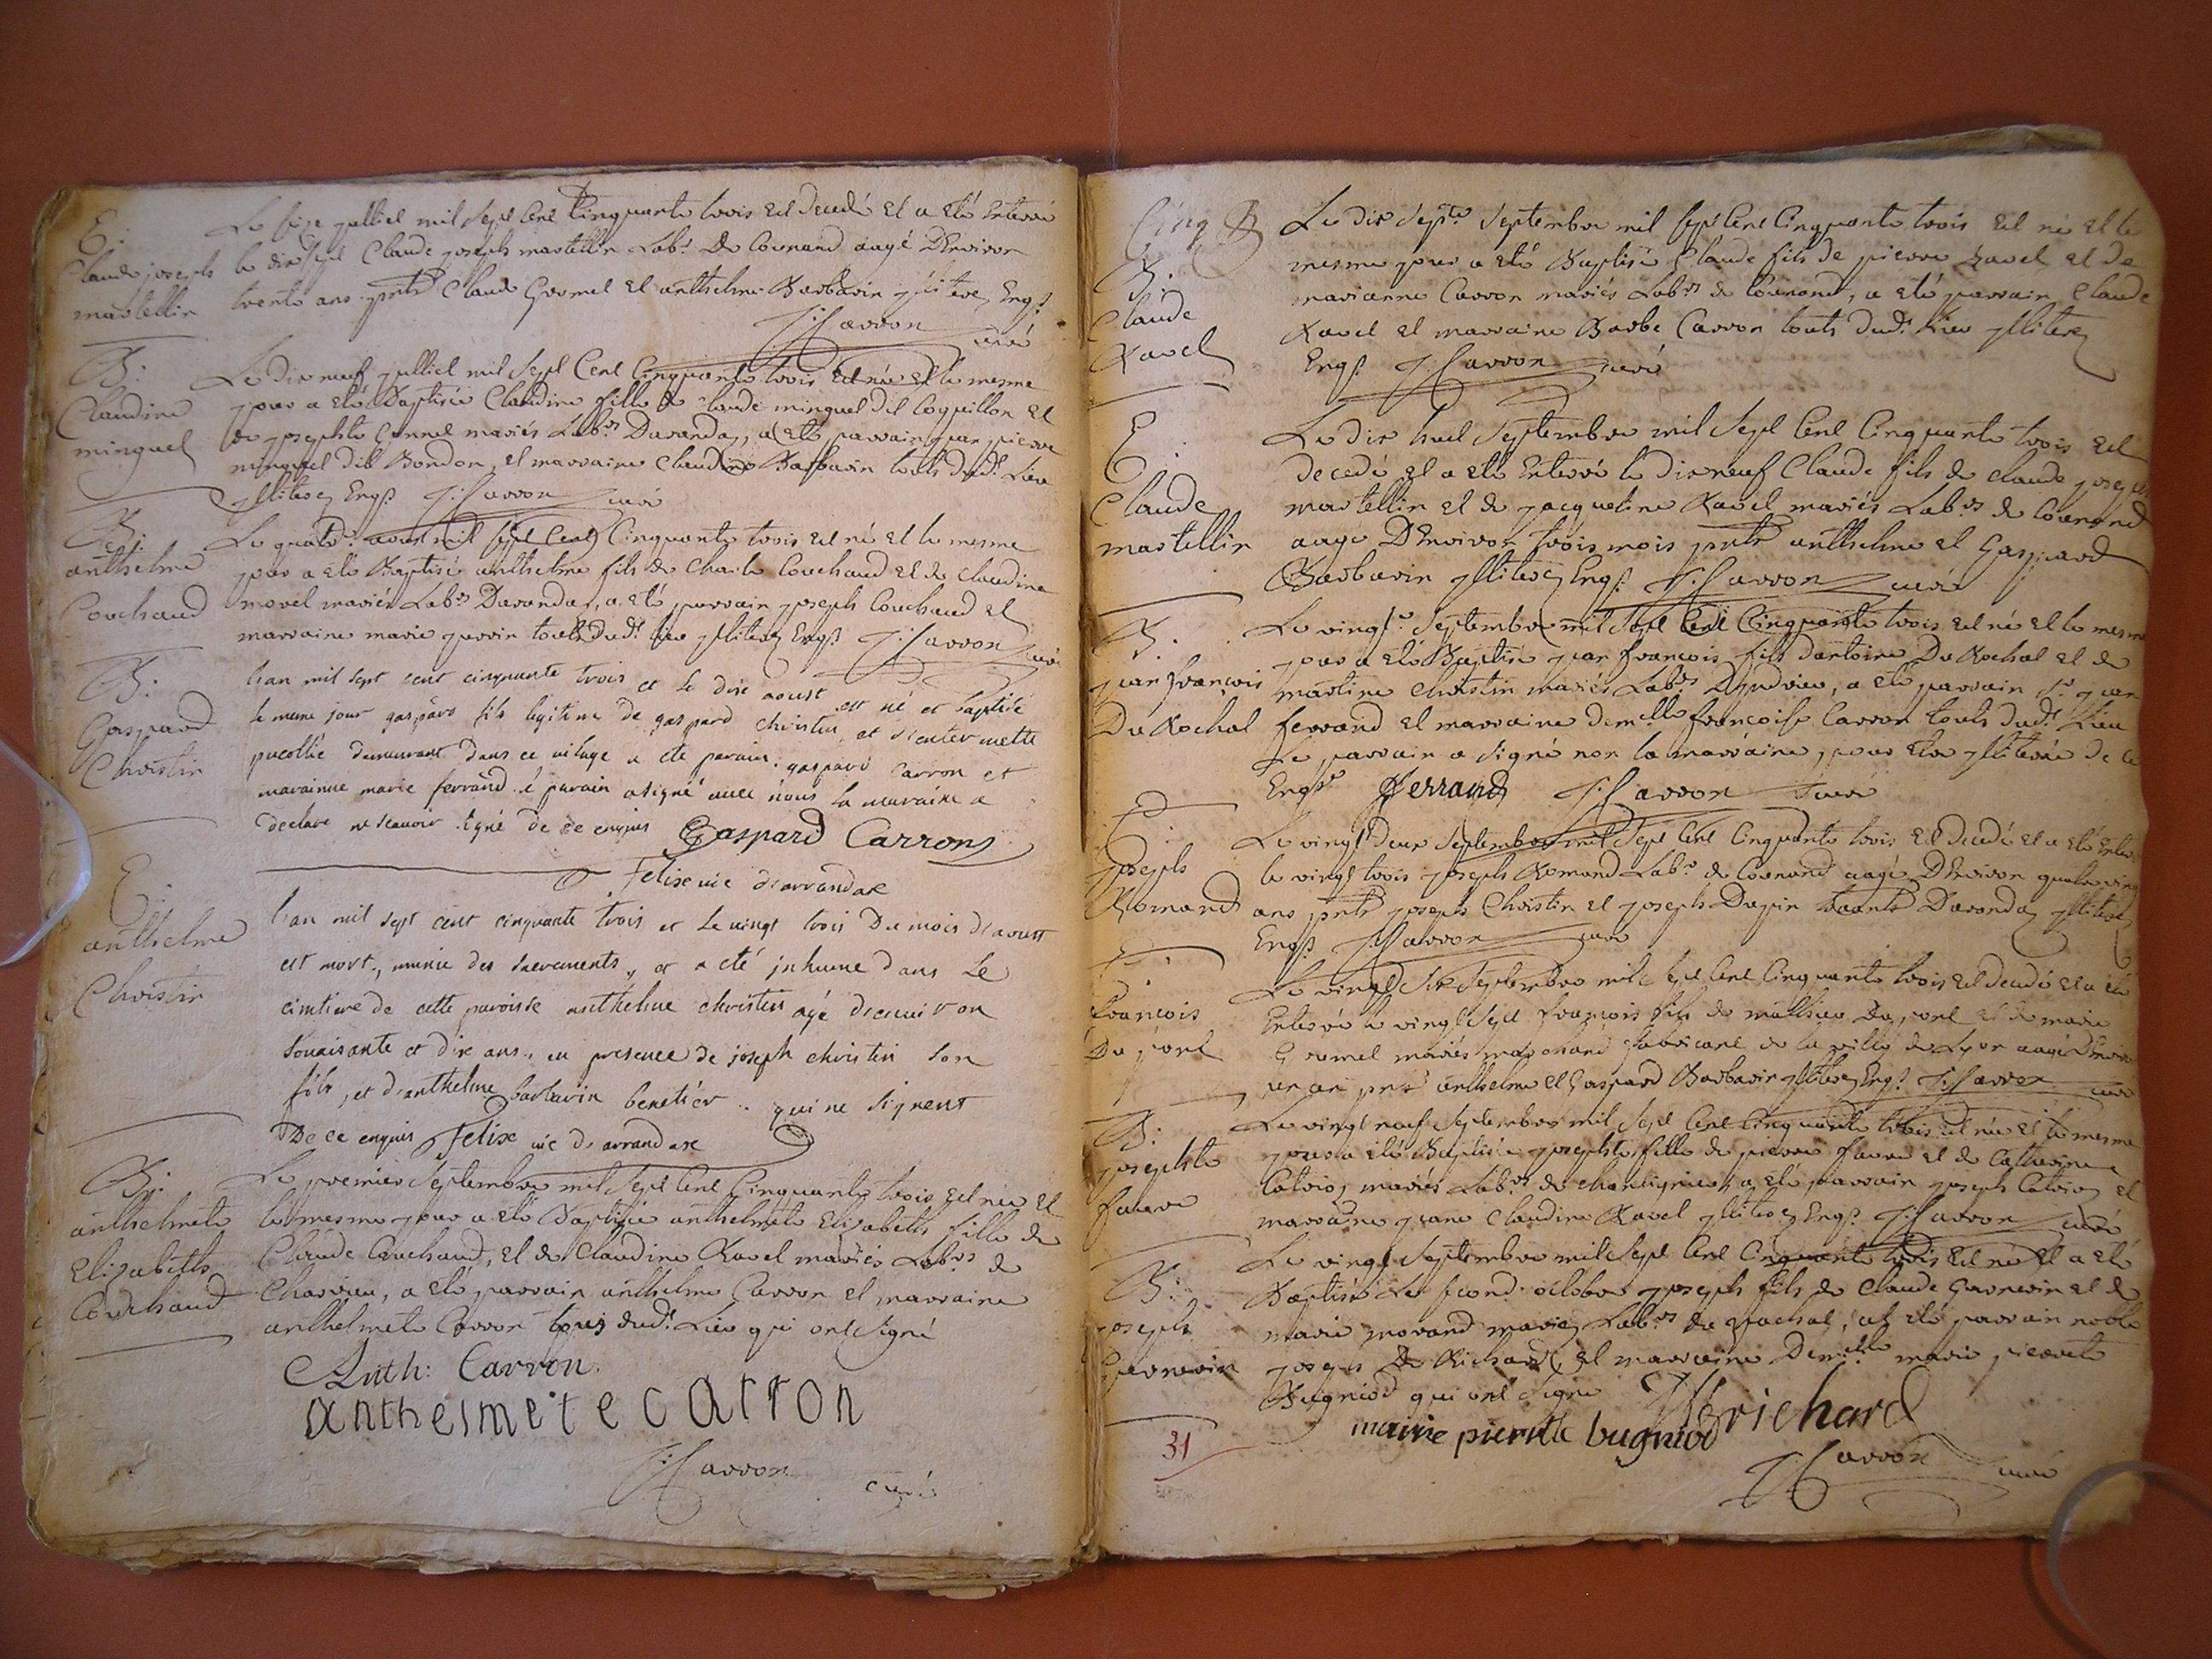 E.
Claude joseph
mastellin
Le seze julliel mil sepl Cenl Cinquante trois esl decedé el a eté Enterré
le dix sepl Claude joseph mastellin Labr. de Counand aagé DEnviron
trente ans pnts Claude Gromel el anthelme Barbarin jlliterez Engs.
J: Carron curé
B:
Claudine
minguel
Le dix neuf julliel mil Sepl Cenl Cinquante trois esl née el le mesme
jour a eté Baptisée Claudine fille de claude minguel dil Coquillon el
de josephte Connel mariés Labrs Daranda, a eté parrain jean pierre
minguel dil Bondon, el marraine Claudine Barbarin touts dudt. Lieu
jlliterez Engs. J: Carron curé
B:
anthelme
Couchaud
Le quatr. aoust mil sepl Cenl Cinquante trois esl né el le mesme
jour a eté Baptisé anthelme fils de Charle Couchaud el de claudine
morel mariés Labrs Daranda, a eté parrain joseph Couchaud el
marraine marie perrin touts dudt. lieu jlliterez Engs. J: Carron curé
B:
Gaspard
Christin
l'an mil sept cent cinquante trois et le dix aoust est né et baptisé
le meme jour gaspard fils legitime de gaspard christin, et d'entermette
pucollié demeurant dans ce vilage a ete parain gaspard Carron et
marainne marie ferrand. le parain a signé avec nous la maraine a
declaré ne scavoir signé de ce enquis Gaspard Carron
Felix vic d'arrandax
E.
anthelme
Christin
l'an mil sept cent cinquante trois et le vingt trois du mois d'aoust
est mort, munie des sacrements, et a eté inhumé dans le
cimtiere de cette paroisse anthelme christin agé d'environ
souaisante et dix ans, en presence de joseph christin son
fils, et d'anthelme barbarin benetiér. qui ne signent
De ce enquis Felix vic d'arrandax
B:
anthelmete
Elizabeth
Couchaud
Le premier Septembre mil Sepl Cenl Cinquante trois esl née el
le mesme jour a eté Baptisée anthelmete Elizabeth fille de
Claude Couchaud, el de Claudine Ravel mariés Labrs de
Charvieu, a eté parrain anthelme Carron el marraine
anthelmete Carron touts dudt. Lieu qui onl signé
Anth: Carron.
anthelmete carron
J: Carron curé
Cinq
B.
Claude
Ravel
Le dix septe Septembre mil sepl Cenl Cinquante trois esl né el le
mesme jour a eté Baptisé Claude fils de pierre Ravel el de
marianne Carron mariés Labrs de Counand, a eté parrain Claude
Ravel el marraine Barbe Carron touts dudt. Lieu jlliterez
Engs. J: Carron curé
E.
Claude
mastellin
Le dix huil Septembre mil Sepl Cenl Cinquante trois esl
decedé el a eté Enterré le dix neuf Claude fils de claude joseph
mastellin el de jacquetine Ravel mariés Labrs de Counand
aagé DEnviron trois mois pnts anthelme el Gaspard
Barbarin jlliterez Engs. J: Carron curé
B.
jean françois
Du Rochal
Le vingte. Septembre mil Sepl Cenl Cinquante trois esl né el le mesme
jour a eté Baptisé jean françois fils dantoine Du Rochal el de
martine Christin mariés Labrs Dyndrieu, a eté parrain Sr. jean
ferrand el marraine demelle françoise Carron touts dudt. Lieu
Le parrain a signé non la marraine, pour etre jlliterée de ce
Engse JFerrand J: Carron curé
E.
joseph
Romand
Le vingt deux Septembre mil Sepl Cenl Cinquante trois esl decedé el a eté Enterré
le vingt trois joseph Romand Labr. de Counand aagé DEnviron quatre vingt
ans pnts joseph Christin el joseph Dupin touts Daranda jlliterez
Engs. J: Carron curé
E.
françois
Du ponl
Le vingt Six Septembre mil Sepl Cenl Cinquante trois esl decedé el a eté
Enterré le vingt Sepl françois fils de mathieu Du ponl el de marie
Gromel mariés marchand fabricanl de la ville de Lyon aagé DEnviron
un an pnts anthelme el Gaspard Barbarin jlliterez Engs. J: Carron curé
B:
josephte
favre
Le vingt neuf Septembre mil Sepl Cenl Cinquante trois esl née el le mesme
jour a eté Baptisée josephte fille de pierre favre el de Catherine
Calvioz mariés Labrs de chantignieu, a eté parrain joseph Calvioz el
marraine jeane Claudine Ravel jlliterez Engs. J: Carron curé
B:
joseph
Guernerin
Le vingt Septembre mil Sepl Cenl Cinquante trois esl né el a eté
Baptisé Le second octobre joseph fils de Claude Guernerin el de
marie morand mariez Labrs du rachal, a eté parrain noble
joseph De Richard, el marraine Demelle marie pierrete
Bugniod qui onl signé JDrichard
marie pierrette bugniod
J: Carron curé
31